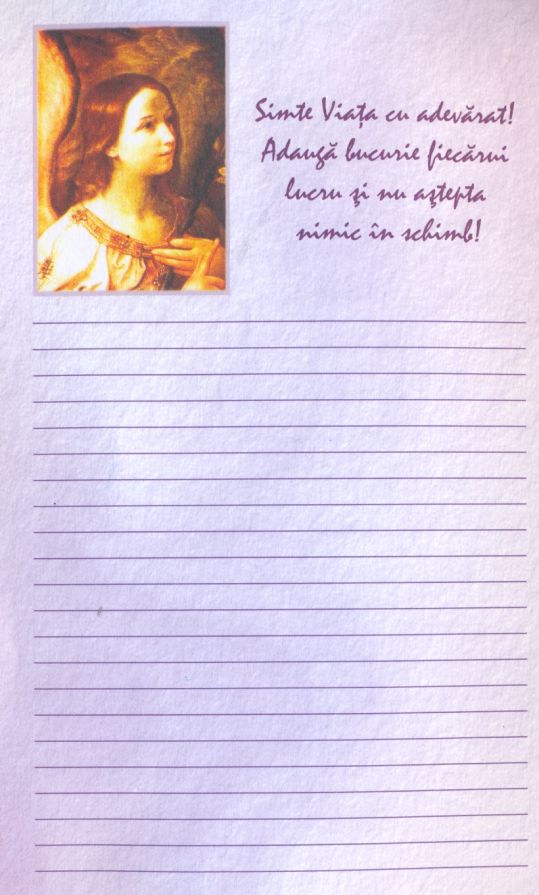 Simte Viaţa cu adevărat!
Adaugă bucurie fiecărui
lucru şi nu aştepta
nimic în schimb!